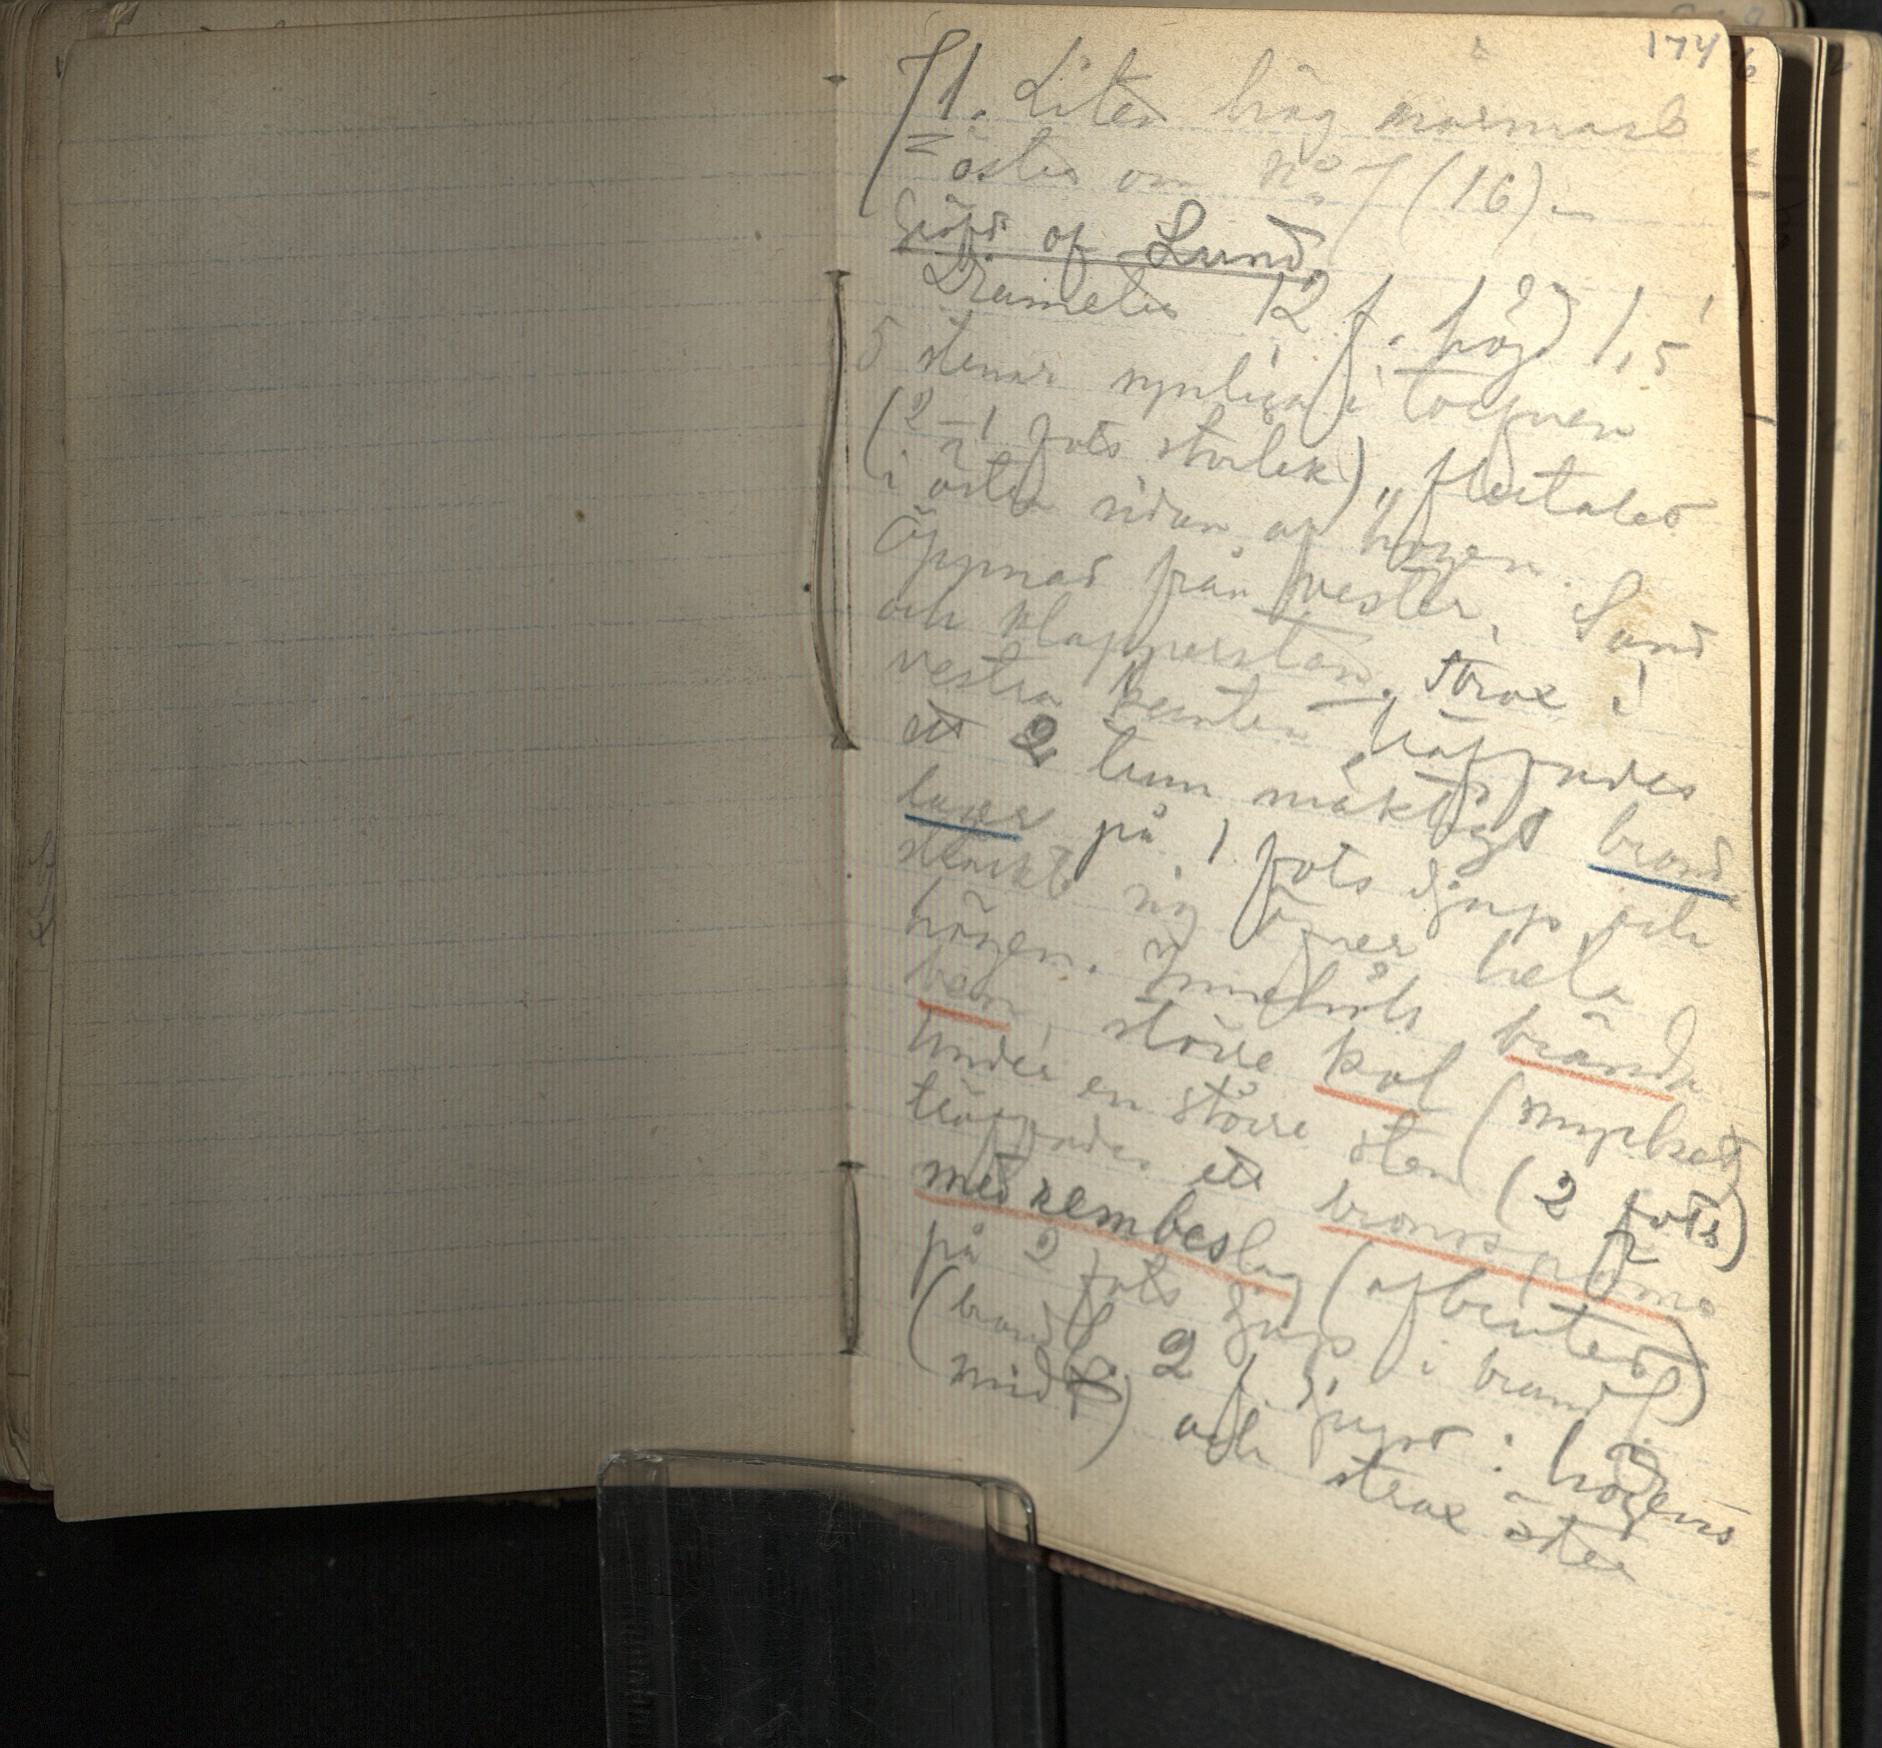 174
71. Liten hög närmast
öster om No 7 (16).
Gräfd af Lund.
Diameter 12 f. höjd 1,5
5 stenar synliga i torfven
(2–1 fots storlek), flertalet
i östra sidan af högen.
Öppnad från vester. Sand
och klappersten. Strax i
vestra kanten träffades
ett 2 tum mäktigt brand
lager på 1 fots djup och
sträckte sig öfver hela
högen. Innehöll brända
ben, större kol (mycket)
Under en större sten (2 fots)
träffades ett bronsspänne
med rembeslag (afbrutet)
på 2 fots djup i brandl.
(brandl. 2 f. djupt i högens
midt) och strax öster